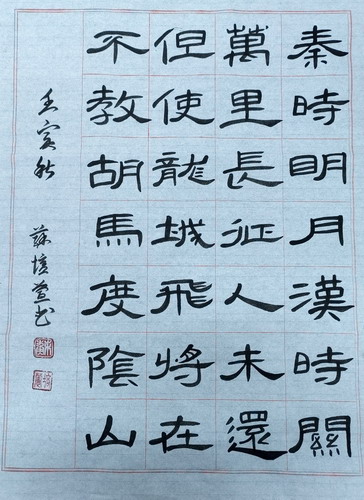 秦時明月漢時關
萬里長征人未還
但使龍城飛將在
不教胡馬度陰山
壬寅秋 培书